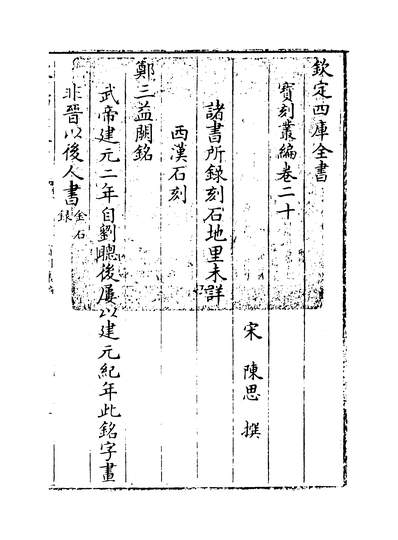 欽定四庫全書
寳刻叢編卷二十
宋 陳思 撰
諸書所錄刻石地里未詳
西漢石刻
鄭三益闕銘
武帝建元二年自劉聰後屢以建元紀年此銘字畫
非晉以後人書金石
錄